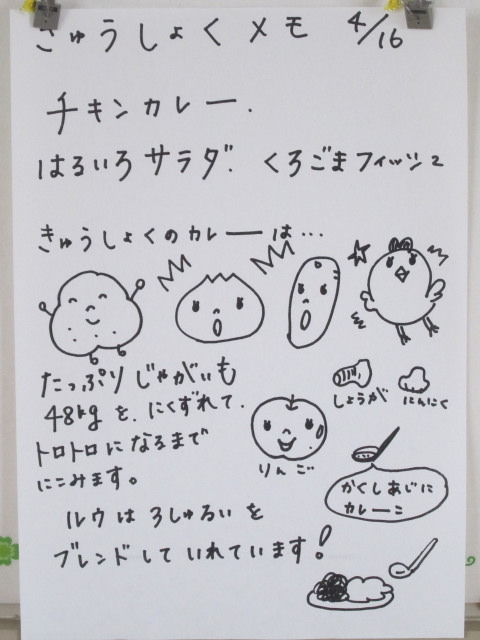 きゅうしょくメモ 4/16
チキンカレー.
はるいろサラダ. くろごまフィッシュ
きゅうしょくのカレーは...
たっぷりじゃがいも
48kgを、にくずれて、
トロトロになるまで
にこみます。
しょうが にんにく
りんご
かくしあじに
カレーこ
ルウは3しゅるいを
ブレンドしていれています!